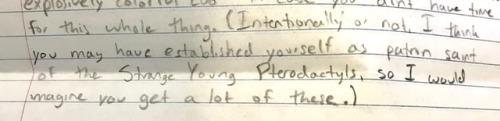 explosively colorful in case you dint have time
for this whole thing. (Intentionally or not, I think
you may have established yourself as patron saint
of the Strange Young Pterodactyls, so I would
imagine you get a lot of these.)